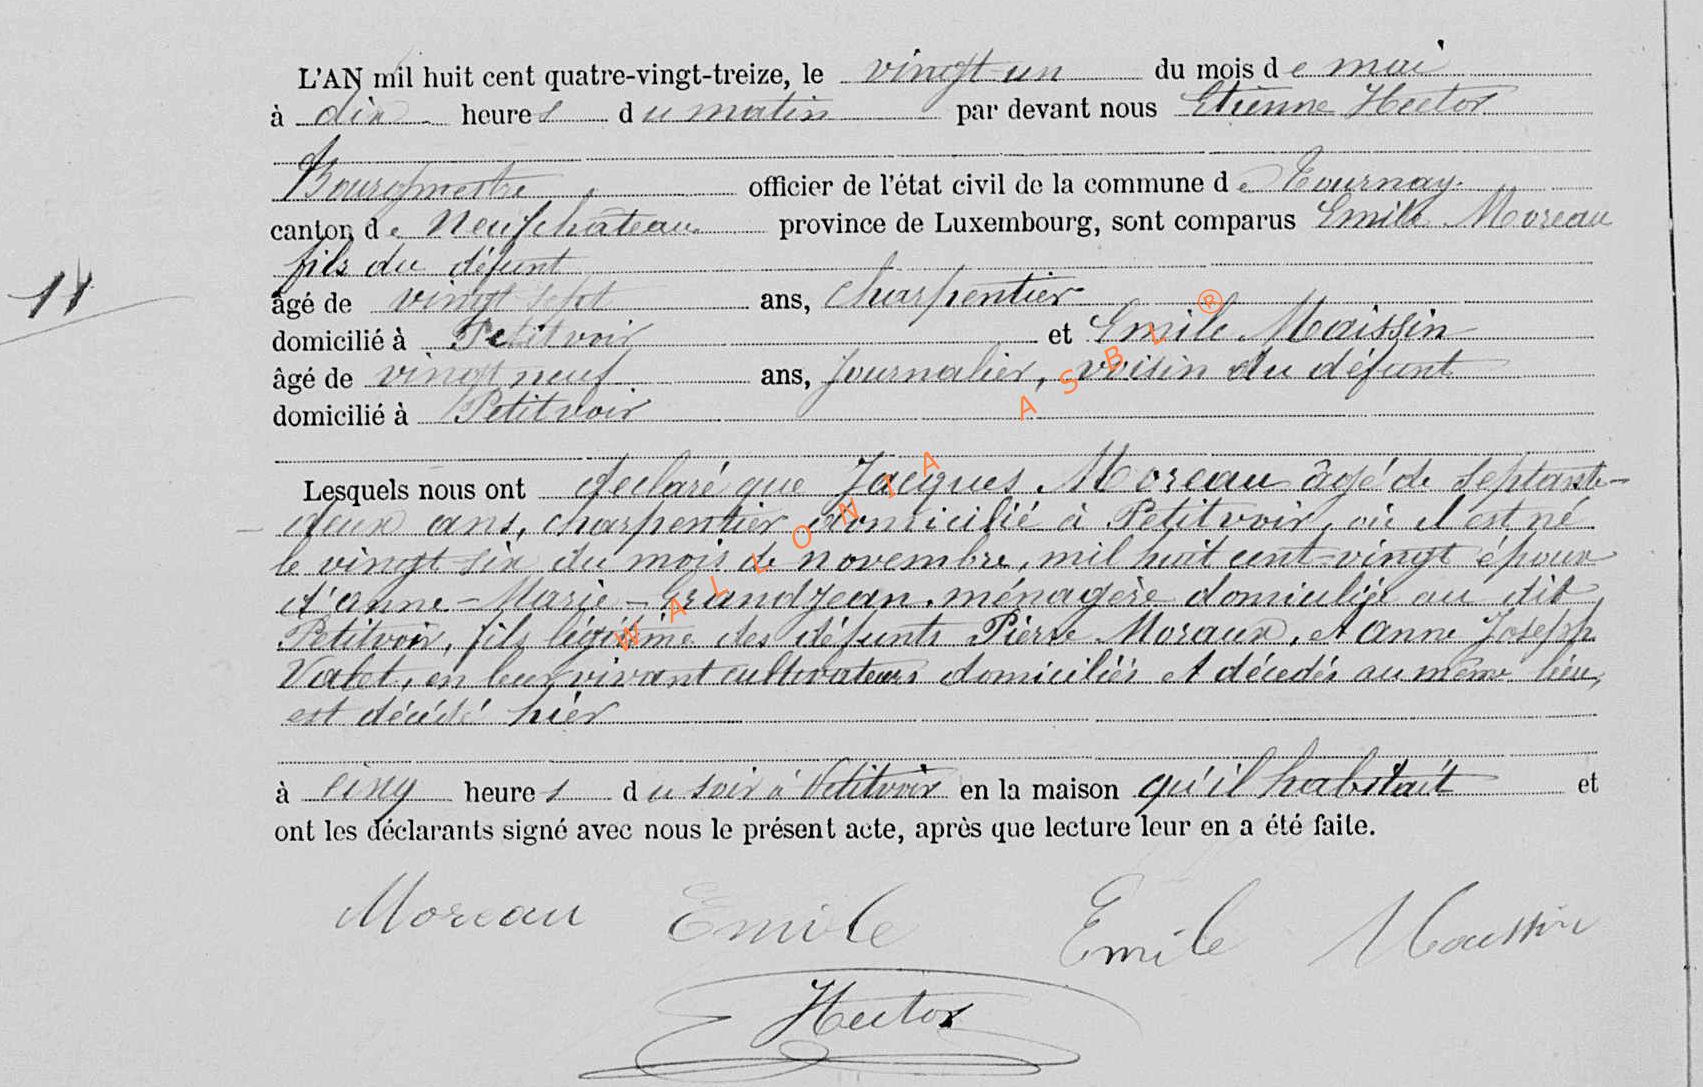 L'AN mil huit cent quatre-vingt-treize, le vingt-un du mois de mai
à dix heures du matin par devant nous Etienne Hector
Bourgmestre officier de l'état civil de la commune de Tournay.
canton de Neufchateau province de Luxembourg, sont comparus Emile Moreau
fils du défunt
âgé de vingt sept ans, charpentier
11
domicilié à Petitvoir et Emile Maissin
âgé de vingt neuf ans, journalier, voisin du défunt
domicilié à Petitvoir
Lesquels nous ont déclaré que Jacques Moreau âgé de septante-
deux ans, charpentier domicilié à Petitvoir, où il est né
le vingt-six du mois de novembre, mil huit cent-vingt époux
d'anne-Marie-Grandjean, ménagère domiciliée au dit
Petitvoir, fils légitime des défunts Pierre Moraux, et Anne Joseph
Valet, en leur vivant cultivateurs domiciliés et décedés au même lieu,
est décédé hier
à cinq heures du soir à Petitvoir en la maison qu'il habitait et
ont les déclarants signé avec nous le présent acte, après que lecture leur en a été faite.
Moreau Emile Emile Maissin
Hector
WALLONIA ASBL ®